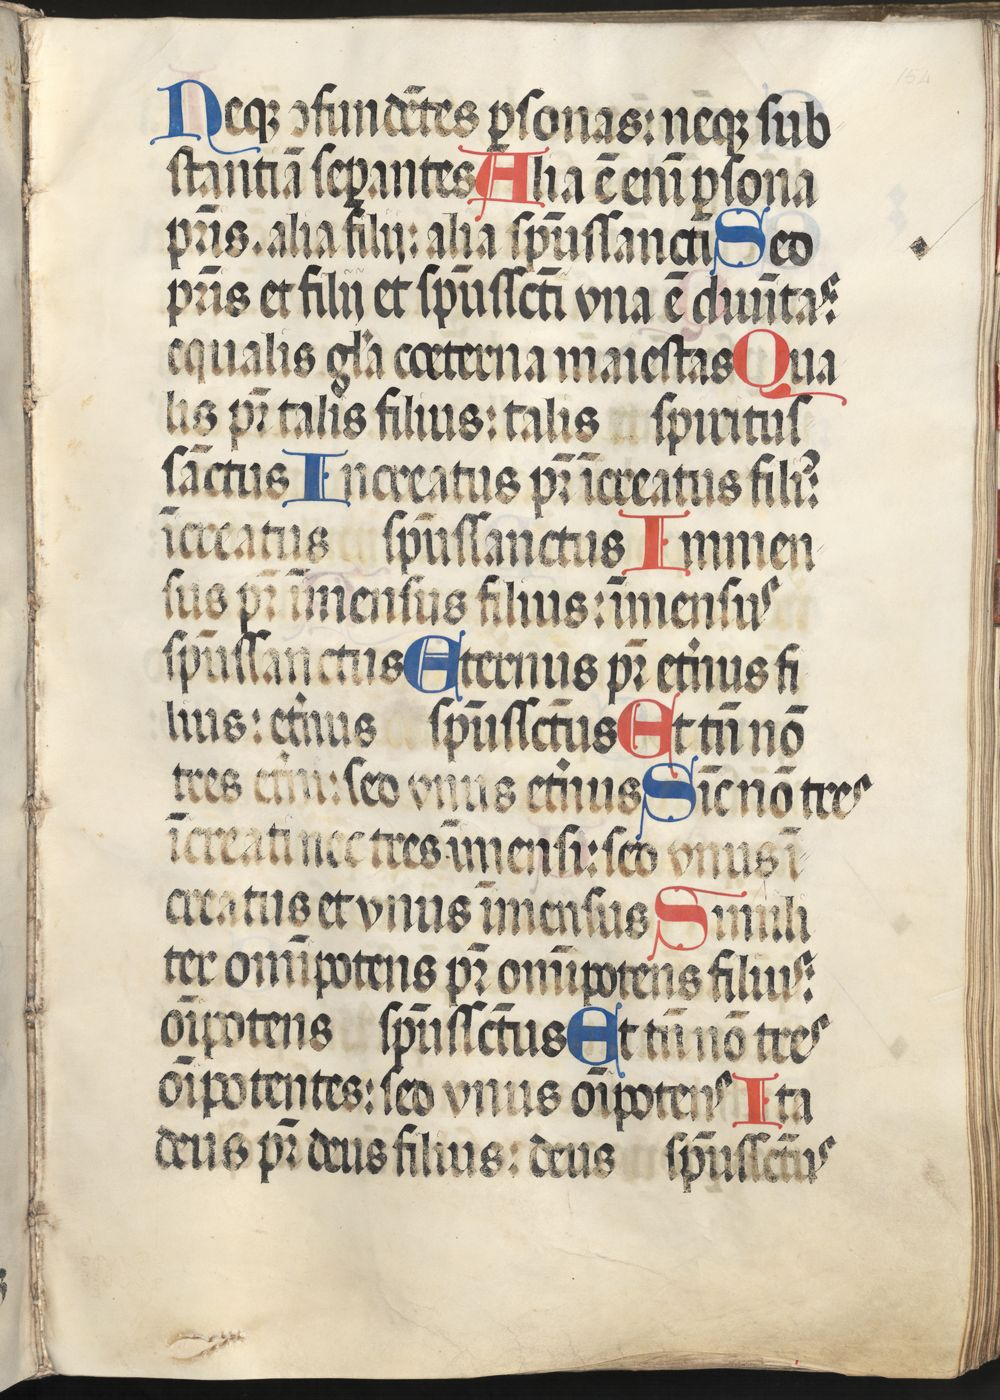 Neqꝫ ꝯfundētes ꝑsonas: neqꝫ sub
stantiā seꝑantes Alia ē eni̅ ꝑsona
pr̄is. alia filij: alia sp̄ussancti Seo
pr̄is et filij et sp̄usscti̅ vna ē diuīitas:
equalis gl̄a coeterna maiestas Qua
lis pr̄ talis filius: talis spiritus
sāctus Increatus pr̄ īcreatus filiꝰ:
īcreatus sp̄ussanctus Immen
sus pr̄ īmensus filius: īmensus
sp̄ussanctus Eternus pr̄ et̄nus fi
lius: et̄nus sp̄ussct̄us Et tn̄ nō
tres et̄ni: seo vnus et̄nus Sic̄ nō tres
īcreati nec tres īmensi: seo vnus ī
creatus et vnus īmensus Simili
ter omīpotens pr̄ omīpotens filius:
oīpotens sp̄ussct̄us Et tn̄ nō tres
oīpotentes: seo vnus oīpotens Ita
deus pr̄ deus filius: deus sp̄ussct̄us
154